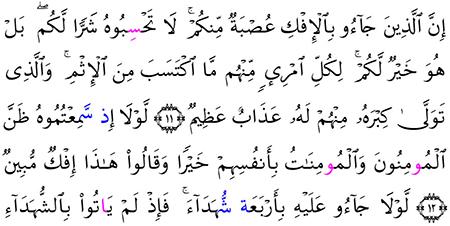 إِنَّ ٱلَّذِينَ جَآءُو بِٱلۡإِفۡكِ عُصۡبَةٌ مِّنكُمۡۚ لَا تَحۡسِبُوهُ شَرًّا لَّكُمۖ بَلۡ
هُوَ خَيۡرٌ لَّكُمۡۚ لِكُلِّ ٱمۡرِيٕٖ مِّنۡهُم مَّا ٱكۡتَسَبَ مِنَ ٱلۡإِثۡمِۚ وَٱلَّذِى
تَوَلَّىٰ كِبۡرَهُۥ مِنۡهُمۡ لَهُۥ عَذَابٌ عَظِيمٌ ۝١١ لَوۡلَا إِذ سَّمِعۡتُمُوهُ ظَنَّ
ٱلۡمُومِنُونَ وَٱلۡمُومِنَٰتُ بِأَنفُسِهِمۡ خَيۡرًا وَقَالُوا هَٰذَا إِفۡكٌ مُّبِينٌ
۝١٢ لَوۡلَا جَآءُو عَلَيۡهِ بِأَرۡبَعَة شُّهَدَآءَۚ فَإِذۡ لَمۡ يَاتُوا بِٱلشُّهَدَآءِ